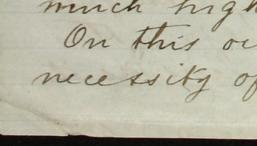 much high
On this oc
necessity of